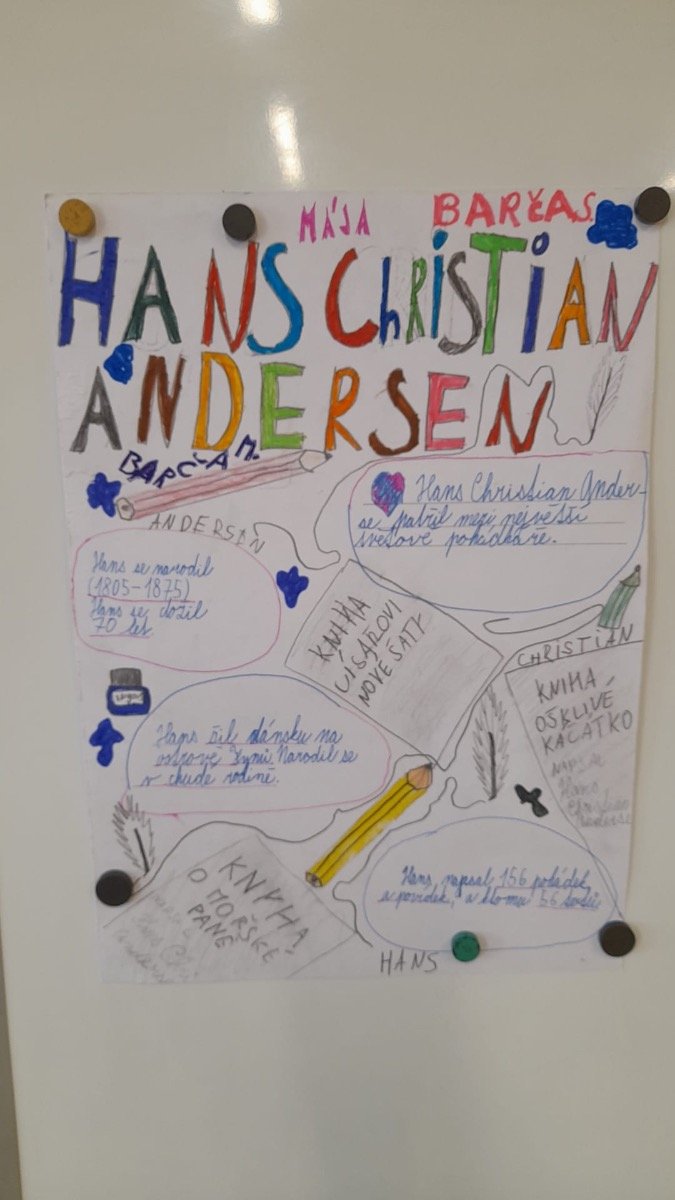 MÁJA
BARČA S.
HANS ChRiSTiAN
ANDERSEN
BARČA M.
ANDERSAN
Hans Christian Ander-
se patřil mezi největší
světové pohádkáře.
Hans se narodil
(1805-1875)
Hans se dožil
70 let
KNIHA
CÍSAŘOVI
NOVÉ ŠATY
CHRISTIAN
KNIHA
OŠKLIVÉ
KAČÁTKO
NAPSAL
Hans
Christian
Hans žil dánsku na
ostrově Fynů. Narodil se
v chudé rodině.
KNYHA
O MOŘSKÉ
PANĚ
Hans napsal 156 pohádek
a povídek, a k tomu 56
HANS